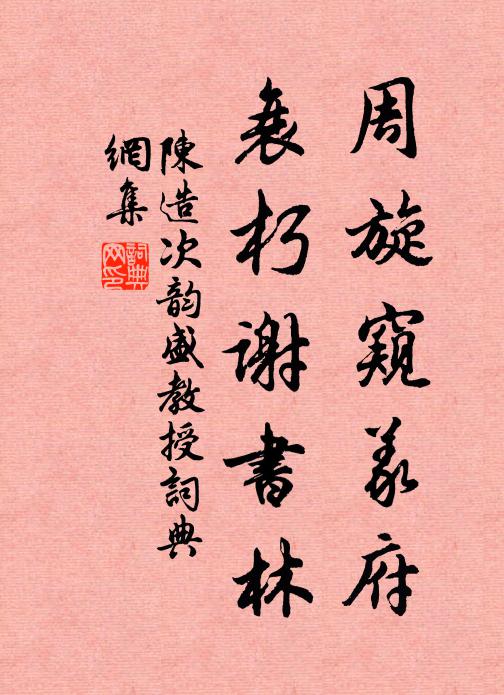 周旋窺義府
衰朽謝書林
陳造次韵盛教授詞典
網集
詞典網印